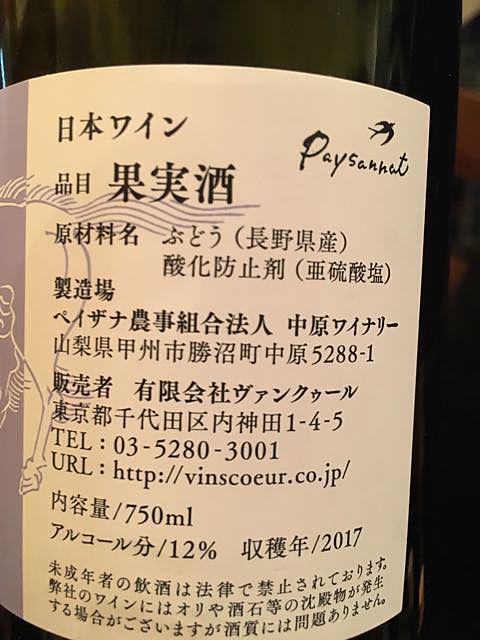 日本ワイン
Paysannat
品目 果実酒
原材料名 ぶどう（長野県産）
酸化防止剤（亜硫酸塩）
製造場
ペイザナ農事組合法人 中原ワイナリー
山梨県甲州市勝沼町中原5288-1
販売者 有限会社ヴァンクゥール
東京都千代田区内神田1-4-5
TEL：03-5280-3001
URL：http://vinscoeur.co.jp/
内容量/750ml
アルコール分/12% 収穫年/2017
未成年者の飲酒は法律で禁止されております。
弊社のワインにはオリや酒石等の沈殿物が発生
する場合がございますが酒質には問題ありません。